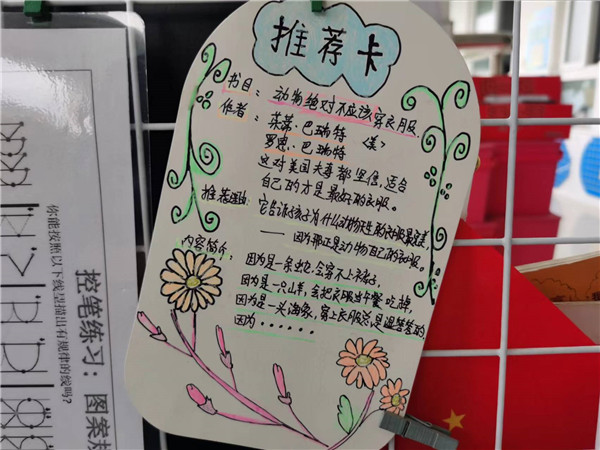 推荐卡
书目：动物绝对不应该穿衣服.
作者：茱蒂·巴瑞特〈美〉
罗恩·巴瑞特
这对美国夫妻都坚信，适合
自己的才是最好的衣服。
推荐理由：它告诉孩子为什么动物天生的衣服最完美，
——因为那正是动物自己的衣服。
内容简介：
因为是一条蛇，会穿不上裤子，
因为是一只山羊，会把衣服当午餐吃掉，
因为是一头海象，穿上衣服总是湿答答的，
因为······
控笔练习：图案
你能按照以下线呈描出有规律的线吗？